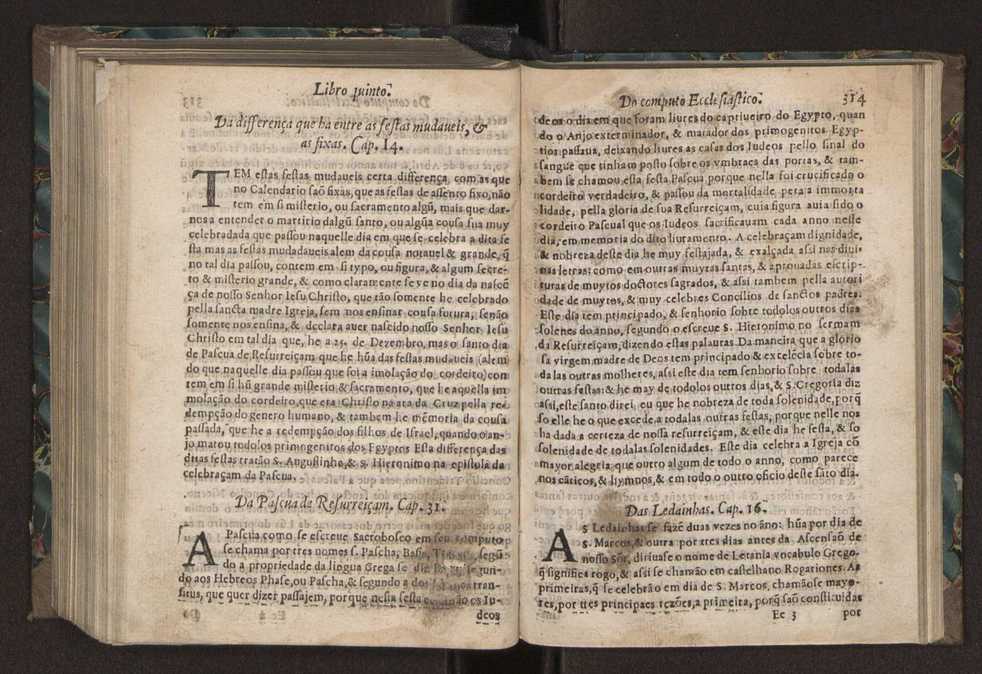 Libro quinto.
Da differença que ha entre as festas mudaueis, &
as fixas. Cap. 14.
TEM estas festas mudaueis certa differença, com as que
no Calendario saõ fixas, que as festas de assento fixo, não
tem em si misterio, ou sacramento algũ, mais que dar-
nos a entender o martirio dalgũ santo, ou algũa cousa sua muy
celebradada que passou naquelle dia em que se celebra a dita fe
sta mas as festas mudadaueis alem da cousa notauel & grande, q̃
no tal dia passou, contem em si typo, ou figura, & algum secre-
to & misterio grande, & como claramente se ve no dia da nascẽ
ça de nosso Senhor Iesu Christo, que tão somente he celebrado
pella sancta madre Igreja, sem nos ensinar cousa futura, senão
somente nos ensina, & declara auer nascido nosso Senhor Iesu
Christo em tal dia que, he a 25. de Dezembro, mas o santo dia
de Pascua de Resurreiçam que he hũa das festas mudaueis (alem
do que naquelle dia passou que foi a imolação do cordeito) con
tem em si hũ grande misterio & sacramento, que he aquella im
molação do cordeiro, que era Christo na ara da Cruz pella re-
dempção do genero humano, & tambem he mẽmoria da cousa
passada, que he a redempção dos filhos de Israel, quando o an-
jo matou todolos primogenitos dos Egyptos Esta differença das
ditas festas tratão S. Augustinho, & S. Hieronimo na epistola da
celebraçam da Pascua.
Da Pascua da Resurreiçam. Cap. 31.
A Pascua como se escreue Sacrobosco em seu computo
se chama por tres nomes s. Pascha, segũ
do a propriedade da lingua Grega se
do aos Hebreos Phase, ou Pascha, & segundo a tran-
situs, que quer dizer passajem, porque nesta festa os Iu-
deos
Do computo Ecclesiastico. 314
deos o dia em que foram liures do captiueiro do Egypto, quan
do o Anjo exterminador, & matador dos primogenitos Egyp-
tios passaua, deixando liures as casas dos Iudeos pello sinal do
sangue que tinham posto sobre os vmbraes das portas, & tam-
bem se chamou esta festa Pascua porque nella foi crucificado o
cordeiro verdadeiro, & passou da mortalidade, pera a immorta
lidade, pella gloria de sua Resurreiçam, cuia figura auia sido o
cordeiro Pascual que os Iudeos sacrificauam cada anno neste
dia, em memoria do dito liuramento. A celebraçam dignidade,
& nobreza deste dia he muy festajada, & exalçada assi nas diui-
nas letras: como em outras muytas santas, & aprouadas escrip-
turas de muytos doctores sagrados, & assi tambem pella autori
dade de muytos, & muy celebres Concilios de sanctos padres.
Este dia tem principado, & senhorio sobre todolos outros dias
solenes do anno, segundo o escreue S. Hieronimo no sermam
da Resurreiçam, dizendo estas palauras. Da maneira que a glorio
sa virgem madre de Deos tem principado & excelẽcia sobre to-
dalas outras molheres, assi este dia tem senhorio sobre todalas
outras festas: & he may de todolos outros dias, & S. Gregorio diz
assi, este santo direi eu que he nobreza de toda solenidade, porq̃
so elle he o que excede a todalas outras festas, porque nelle nos
ha dada a certeza de nossa resurreiçam, & este dia he festa, & so
solenidade de todalas solenidades. Este dia celebra a Igreja cõ
mayor alegria, que outro algum de todo o anno, como parece
nos cãticos, & hymnos, & em todo o outro oficio deste sãto dia.
Das Ledainhas. Cap. 16.
As Ledainhas se fazẽ duas vezes no año: hũa por dia de
s. Marcos, & outra por tres dias antes da Ascensaõ de
nosso Sõr, diriuase o nome de Letania vocabulo Grego.
q̃ significa rogo, & assi se chamão em castelhano Rogariones. As
primeiras, q̃ se celebrão em dia de S. Marcos, chamãose mayo-
res, por tres principaes rezões, a primeira, porq̃ saõ constituidas
Ee 3 por